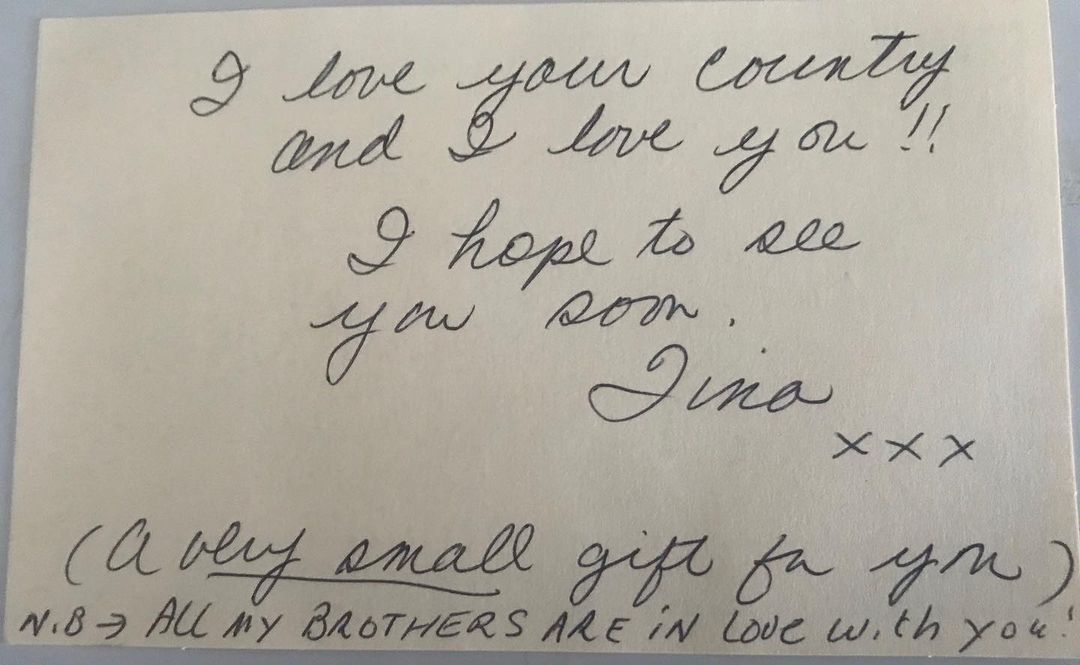 I love your country
and I love you!!
I hope to see
you soon.
Tina
xxx
(A very small gift for you)
N.B → ALL MY BROTHERS ARE iN LOVE With you!